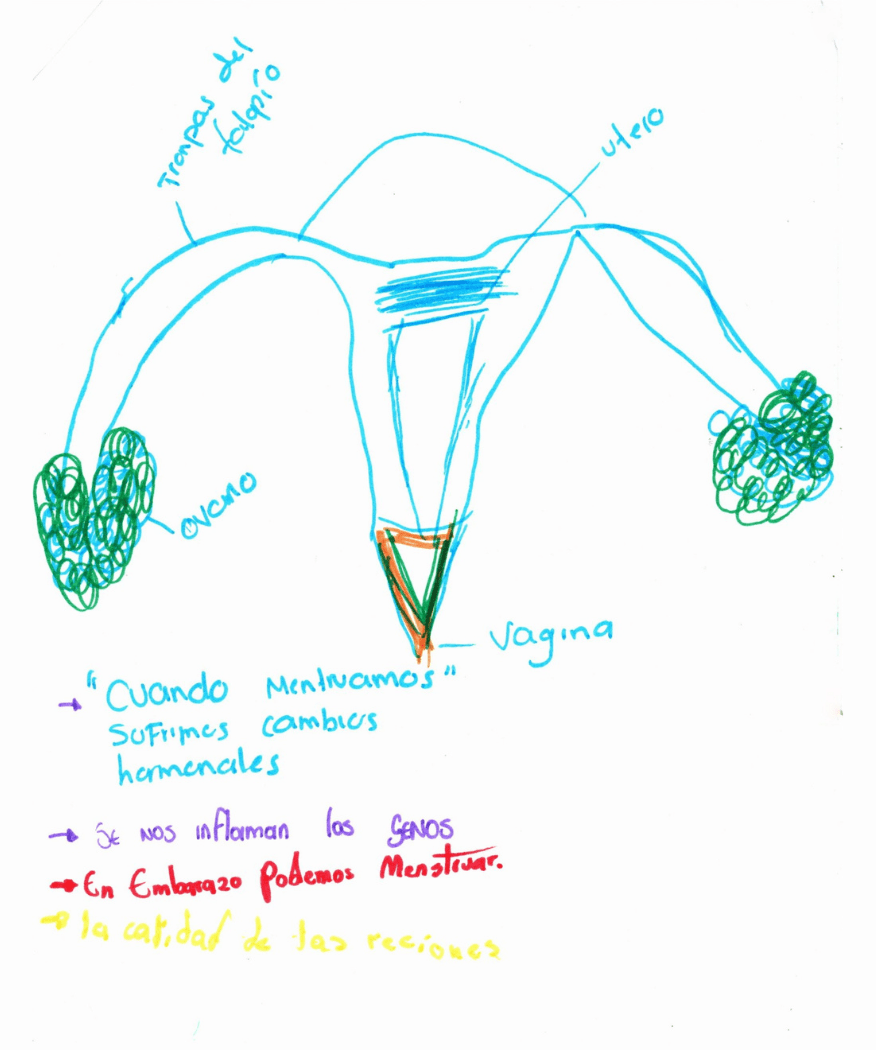 Trompas del
falopio
utero
ovario
Vagina
"Cuando Mentruamos"
Sufrimos cambios
hormonales
Se nos inflaman los senos
En Embarazo Podemos Menstruar.
la catidad de las reciones